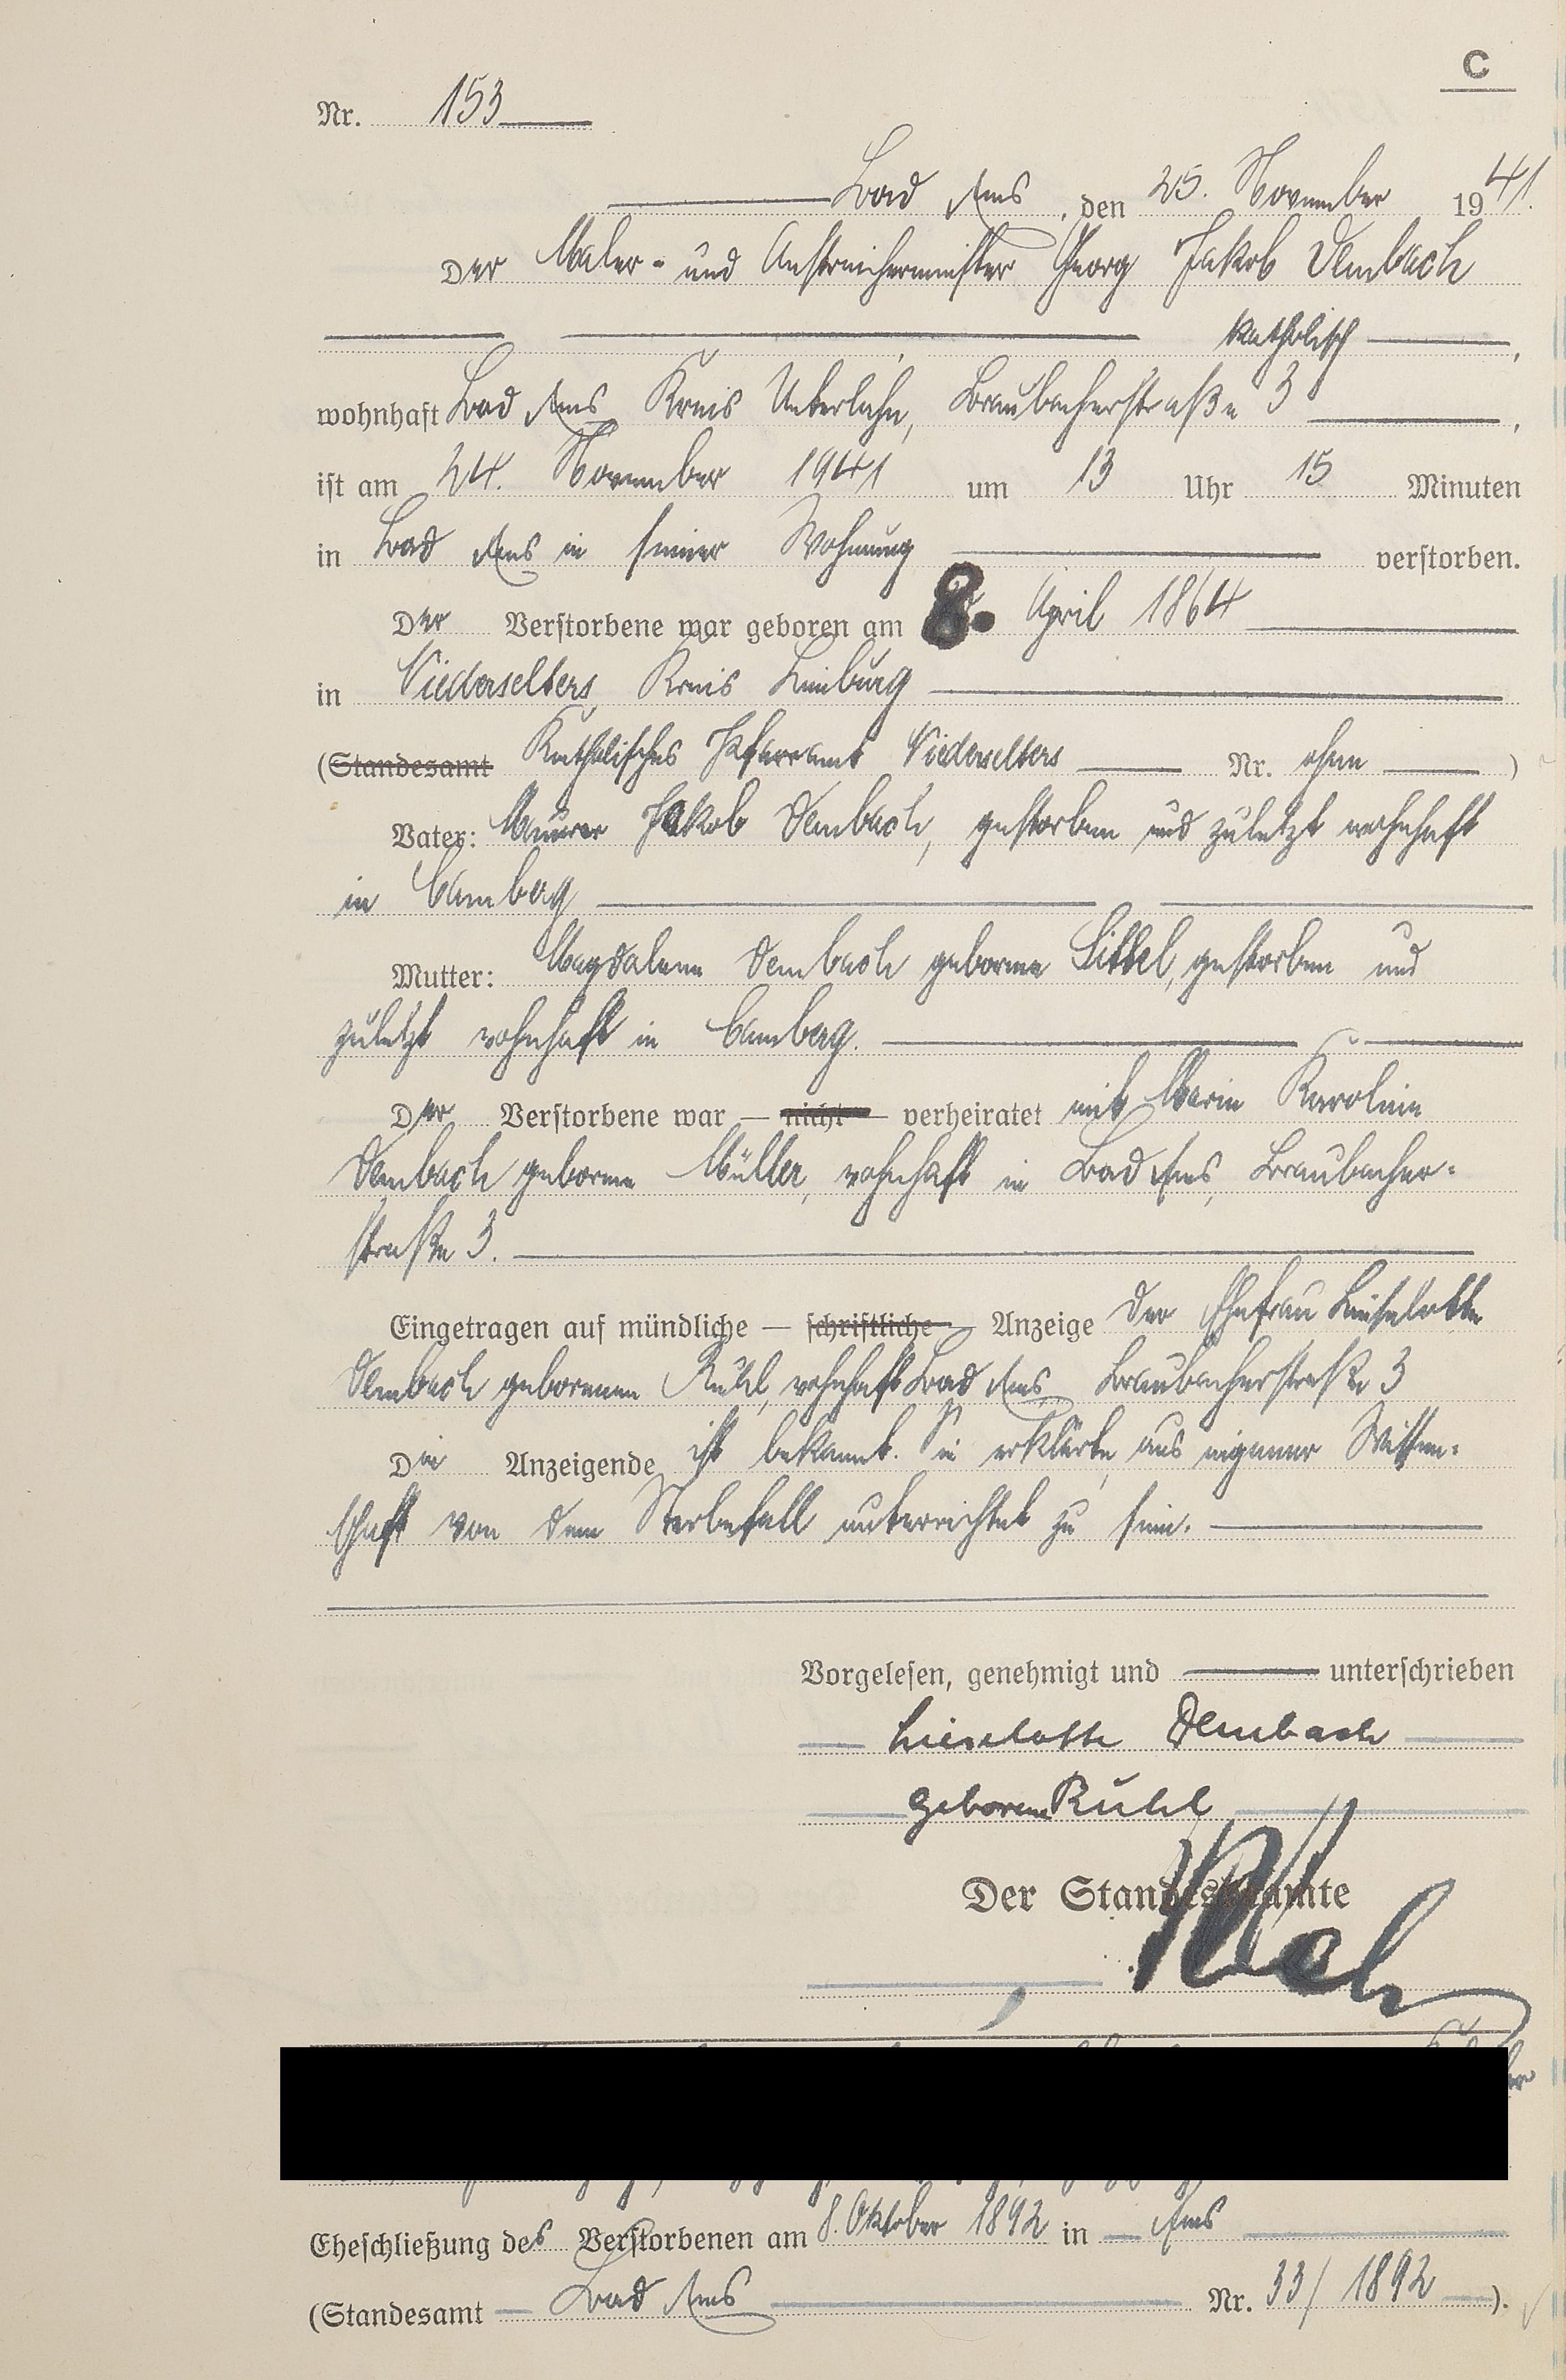 C
Nr. 153
Bad Ems, den 25. November 1941.
Der Maler- und Anstreichermeister Georg Jakob Dembach
katholisch,
wohnhaft Bad Ems, Kreis Unterlahn, Braubacherstraße 3,
ist am 24. November 1941 um 13 Uhr 15 Minuten
in Bad Ems in seiner Wohnung verstorben.
Der Verstorbene war geboren am 8. April 1864
in Niederselters Kreis Limburg
(Standesamt Katholisches Pfarramt Niederselters Nr. ohne )
Vater: Maurer Jakob Dembach, gestorben und zuletzt wohnhaft
in Camberg
Mutter: Magdalena Dembach geborene Sittel, gestorben und
zuletzt wohnhaft in Camberg.
Der Verstorbene war — nicht — verheiratet mit Marie Karoline
Dembach geborene Müller, wohnhaft in Bad Ems, Braubacher-
straße 3.
Eingetragen auf mündliche — schriftliche — Anzeige der Ehefrau Lieselotte
Dembach geborenen Ruhl, wohnhaft Bad Ems, Braubacherstraße 3
Die Anzeigende ist bekannt. Sie erklärte, aus eigener Wissen-
schaft von dem Sterbefall unterrichtet zu sein.
Vorgelesen, genehmigt und unterschrieben
Lieselotte Dembach
geborene Ruhl
Der Standesbeamte
Eheschließung des Verstorbenen am 8. Oktober 1892 in Ems
(Standesamt Bad Ems Nr. 33/1892).